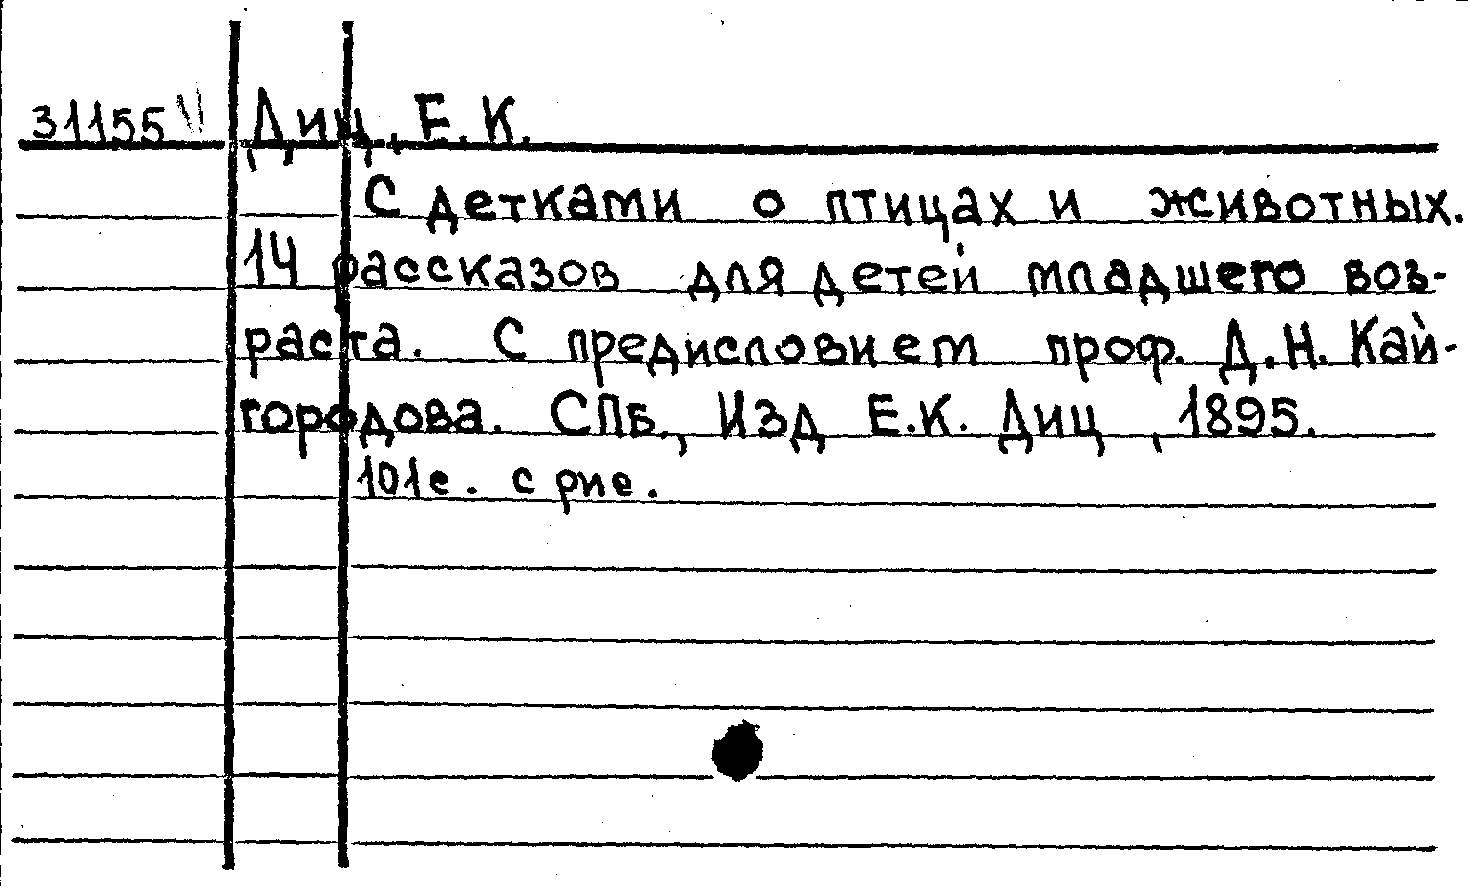 31155 Диц, Е.К.
С детками о птицах и животных.
14 рассказов для детей младшего воз-
раста. С предисловием проф. Д.Н. Кай-
городова. СПБ., Изд Е.К. Диц, 1895.
101с. с рис.